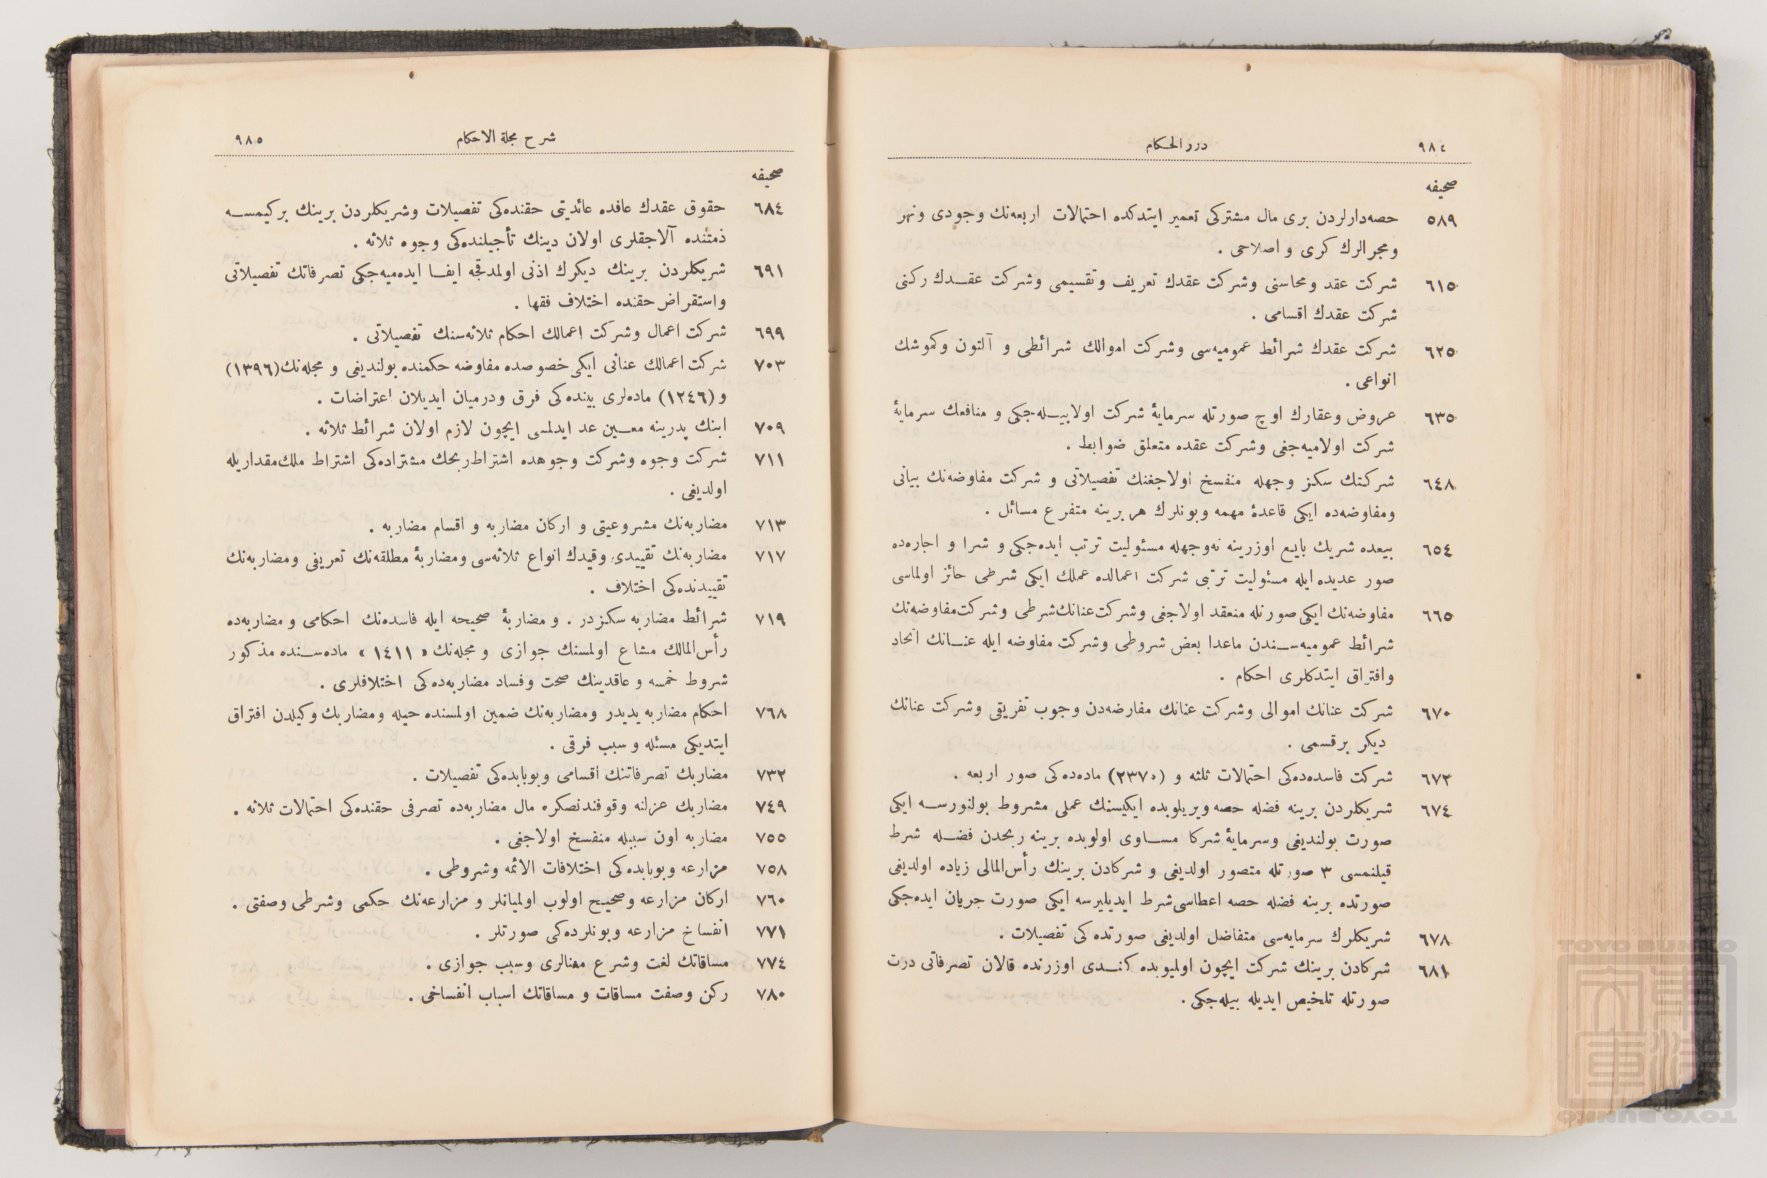 ٩٨٤
دررالحكام
صحيفه
٥٨٩ حصه‌دارلردن برى مال مشتركى تعمير ايتدكده احتمالات اربعه‌نك وجودى ونهر
ومجرالرك كرى و اصلاحى .
٦١٥ شركت عقد ومحاسنى وشركت عقدك تعريف وتقسيمى وشركت عقدك ركنى
شركت عقدك اقسامى .
٦٢٥ شركت عقدك شرائط عموميه‌سى وشركت اموالك شرائطى و آلتون وكموشك
انواعى .
٦٣٥ عروض وعقارك اوچ صورتله سرمايۀ شركت اولابيله‌جكى و منافعك سرمايۀ
شركت اولاميه‌جغى وشركت عقده متعلق ضوابط .
٦٤٨ شركتك سكز وجهله منفسخ اولاجغنك تفصيلاتى و شركت مفاوضه‌نك بيانى
ومفاوضه‌ده ايكى قاعدۀ مهمه وبونلرك هر برينه متفرع مسائل .
٦٥٤ بيعده شريك بايع اوزرينه نه‌وجهله مسئوليت ترتب ايده‌جكى و شرا و اجاره‌ده
صور عديده ايله مسئوليت ترتبى شركت اعمالده عملك ايكى شرطى حائز اولماسى
٦٦٥ مفاوضه‌نك ايكى صورتله منعقد اولاجغى وشركت‌عنانك‌شرطى وشركت‌مفاوضه‌نك
شرائط عموميه‌سندن ماعدا بعض شروطى وشركت مفاوضه ايله عنانك اتحاد
وافتراق ايتدكلرى احكام .
٦٧٠ شركت عنانك اموالى وشركت عنانك مفارضه‌دن وجوب تفريقى وشركت عنانك
ديكر برقسمى .
٦٧٢ شركت فاسده‌ده‌كى احتمالات ثلثه و (٢٣٧٠) ماده‌ده‌كى صور اربعه .
٦٧٤ شريكلردن برينه فضله حصه ويريلوبده ايكيسنك عملى مشروط بولنورسه ايكى
صورت بولنديغى وسرمايۀ شركا مساوى اولوبده برينه ربحدن فضله شرط
قيلنمسى ٣ صورتله متصور اولديغى و شركادن برينك رأس‌المالى زياده اولديغى
صورتده برينه فضله حصه اعطاسى‌شرط ايديليرسه ايكى صورت جريان ايده‌جكى
٦٧٨ شريكلرك سرمايه‌سى متفاضل اولديغى صورتده كى تفصيلات .
٦٨١ شركادن برينك شركت ايچون اوليوبده كندى اوزرنده قالان تصرفاتى درت
صورتله تلخيص ايديله بيله‌جكى .
شرح مجلة الاحكام
٩٨٥
صحيفه
٦٨٤ حقوق عقدك عاقده عائديتى حقنده‌كى تفصيلات وشريكلردن برينك بركيمسه
ذمتنده آلاجقلرى اولان دينك تأجيلنده‌كى وجوه ثلاثه .
٦٩١ شريكلردن برينك ديكرك اذنى اولمدقجه ايفا ايده‌ميه‌جكى تصرفاتك تفصيلاتى
واستقراض حقنده اختلاف فقها .
٦٩٩ شركت اعمال وشركت اعمالك احكام ثلاثه‌سنك تفصيلاتى .
٧٠٣ شركت اعمالك عنانى ايكى خصوصده مفاوضه حكمنده بولنديغى و مجله‌نك(١٣٩٦)
و (١٢٤٦) ماده‌لرى بيننده‌كى فرق ودرميان ايديلان اعتراضات .
٧٠٩ ابنك پدرينه معين عد ايدلمسى ايچون لازم اولان شرائط ثلاثه .
٧١١ شركت وجوه وشركت وجوهده اشتراط‌ ربحك مشتراده‌كى اشتراط ملك‌مقداريله
اولديغى .
٧١٣ مضاربه‌نك مشروعيتى و اركان مضاربه و اقسام مضاربه .
٧١٧ مضاربه‌نك تقييدى وقيدك انواع ثلاثه‌سى ومضاربۀ مطلقه‌نك تعريفى ومضاربه‌نك
تقييدنده‌كى اختلاف .
٧١٩ شرائط مضاربه سكزدر . و مضاربۀ صحيحه ايله فاسده‌نك احكامى و مضاربه‌ده
رأس‌المالك مشاع اولمسنك جوازى و مجله‌نك « ١٤١١ » ماده‌سنده مذكور
شروط خمسه و عاقدينك صحت وفساد مضاربه‌ده‌كى اختلافلرى .
٧٦٨ احكام مضاربه يديدر ومضاربه‌نك ضمين اولمسنده حيله ومضاربك وكيلدن افتراق
ايتديكى مسئله و سبب فرقى .
٧٣٢ مضاربك تصرفاتنك اقسامى وبوبابده‌كى تفصيلات .
٧٤٩ مضاربك عزلنه وقوفندنصكره مال مضاربه‌ده تصرفى حقنده‌كى احتمالات ثلاثه .
٧٥٥ مضاربه اون سببله منفسخ اولاجغى .
٧٥٨ مزارعه وبوبابده‌كى اختلافات الائمه وشروطى .
٧٦٠ اركان مزارعه وصحيح اولوب اولميانلر و مزارعه‌نك حكمى وشرطى وصفتى .
٧٧١ انفساخ مزارعه وبونلرده‌كى صورتلر .
٧٧٤ مساقاتك لغت وشرع معنالرى وسبب جوازى .
٧٨٠ ركن وصفت مساقات و مساقاتك اسباب انفساخى .
TOYO BUNKO